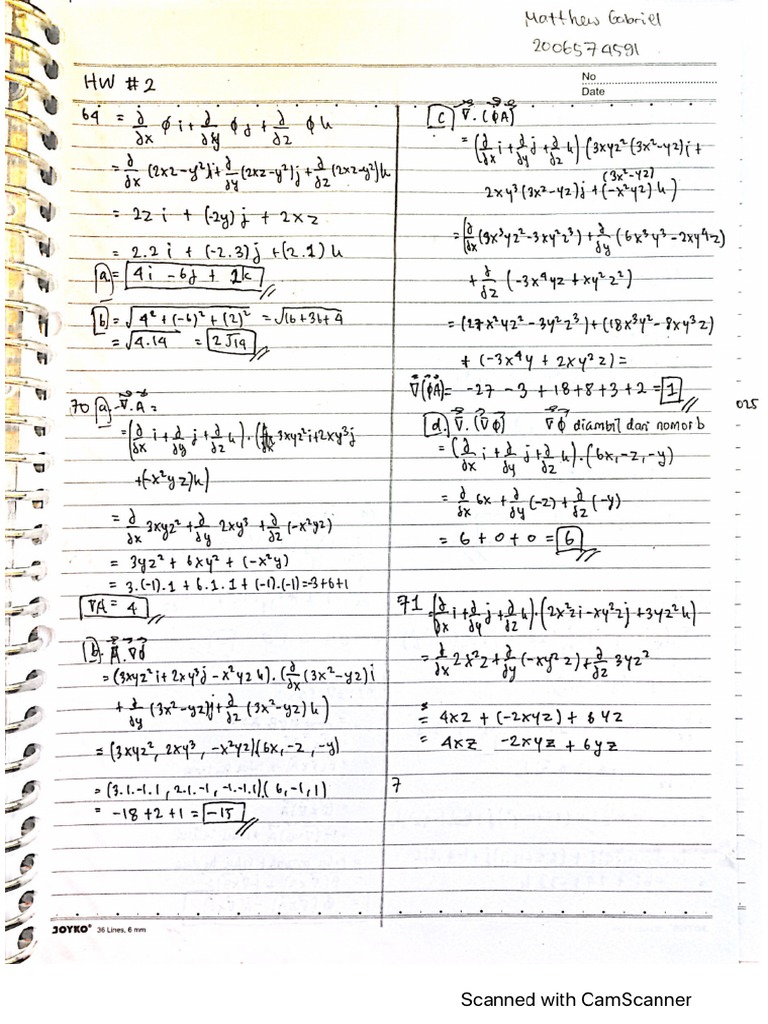 Matthew Gabriel
2006574591
HW #2
No
Date
64 = ∂/∂x ϕ i + ∂/∂y ϕ j + ∂/∂z ϕ k
= ∂/∂x (2xz - y²) i + ∂/∂y (2xz - y²) j + ∂/∂z (2xz - y²) k
= 2z i + (-2y) j + 2x z
= 2.2 i + (-2.3) j + (2.1) k
a. = 4i - 6j + 2k
b = √4² + (-6)² + (2)² = √16 + 36 + 4
= √4.14 = 2√14
70 a. ∇.A =
= (∂/∂x i + ∂/∂y j + ∂/∂z k) . (3xyz² i + 2xy³ j
+ (-x²yz) k)
= ∂/∂x 3xyz² + ∂/∂y 2xy³ + ∂/∂z (-x²yz)
= 3yz² + 6xy² + (-x²y)
= 3.(-1).1 + 6.1.1 + (-1).(-1) = -3+6+1
∇A = 4
b. A.∇ϕ
= (3xyz² i + 2xy³ j - x²yz k) . (∂/∂x (3x² - yz) i
+ ∂/∂y (3x² - yz) j + ∂/∂z (3x² - yz) k)
= (3xyz², 2xy³, -x²yz)(6x, -z, -y)
= (3.1.-1.1, 2.1.-1, -1.-1.1).(6, -1, 1)
= -18 + 2 + 1 = -15
C ∇.(ϕA)
= (∂/∂x i + ∂/∂y j + ∂/∂z k) (3xyz² (3x² - yz) i +
2xy³ (3x² - yz) j + (-x²yz) (3x² - yz) k)
= (∂/∂x (9x³yz² - 3xy²z³) + ∂/∂y (6x³y³ - 2xy⁴z)
+ ∂/∂z (-3x⁴yz + xy²z²)
= (27x²yz² - 3y²z³) + (18x³y² - 8xy³z)
+ (-3x⁴y + 2xy²z) =
∇(ϕA) = -27 - 3 + 18 + 8 + 3 + 2 = 1
d. ∇.(∇ϕ) ∇ϕ diambil dari nomor b
= (∂/∂x i + ∂/∂y j + ∂/∂z k) . (6x, -z, -y)
= ∂/∂x 6x + ∂/∂y (-z) + ∂/∂z (-y)
= 6 + 0 + 0 = 6
71 = (∂/∂x i + ∂/∂y j + ∂/∂z k) . (2x²z i - xy²z j + 3yz² k)
= ∂/∂x 2x²z + ∂/∂y (-xy²z) + ∂/∂z 3yz²
= 4xz + (-2xyz) + 6yz
= 4xz - 2xyz + 6yz
7
025
JOYKO® 36 Lines, 6 mm
Scanned with CamScanner